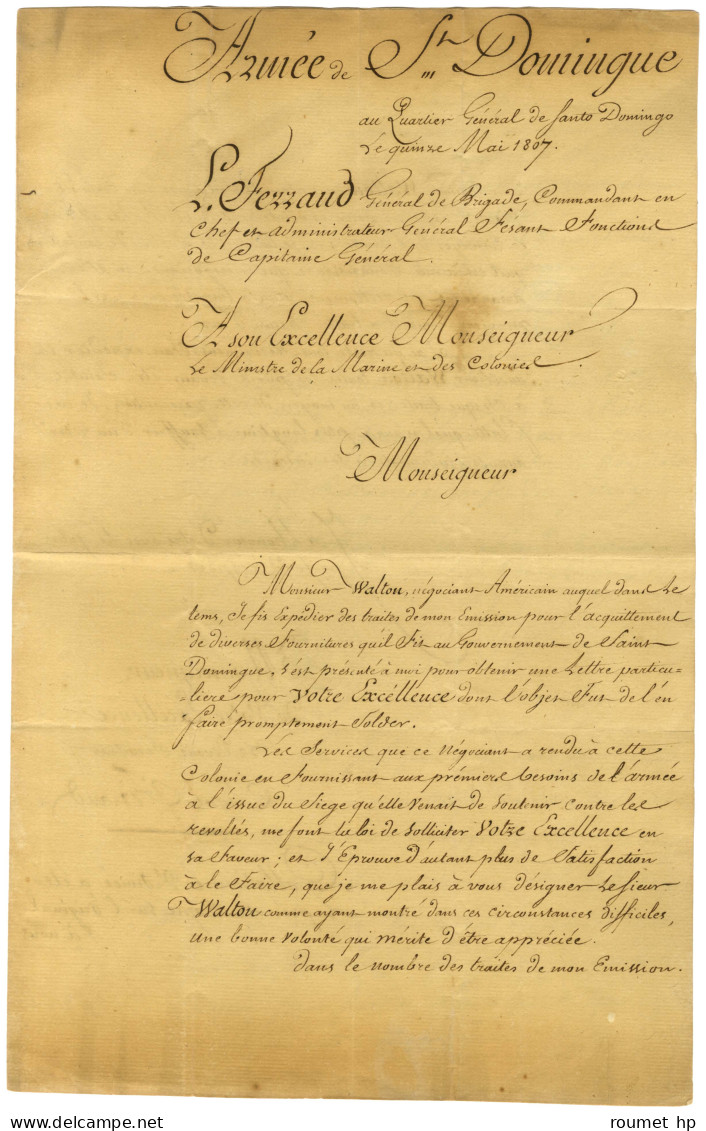 Armée de St Domingue
au Quartier Général de Santo Domingo
Le quinze Mai 1807.
L. Ferrand Général de Brigade, Commandant en
chef et administrateur Général Fésant Fonctions
de Capitaine Général.
A son Excellence Monseigneur
Le Ministre de la Marine et des Colonies.
Monseigneur
Monsieur Walton, négociant Américain auquel dans Le
tems, Je fis Expédier des traites de mon Emission pour l'acquittement
de diverses Fournitures qu'il Fit au Gouvernement de Saint
Domingue, s'est présenté à moi pour obtenir une Lettre particu-
-liere pour Votre Excéllence dont l'objet Fut de l'en
faire promptement Solder.
Les Services que ce Négociant a rendu à cette
Colonie en Fournissant aux prémiers besoins de l'armée
à l'issue du Siege qu'elle venait de Soutenir contre les
revoltés, me font la loi de Solliciter Votre Excellence en
sa Faveur; et J'Eprouve d'autant plus de Satisfaction
à le Faire, que je me plais à vous désigner le Sieur
Walton comme ayant montré dans ces circonstances difficiles,
une bonne volonté qui mérite d'être appréciée.
dans le nombre des traites de mon Emission.
roumet hp